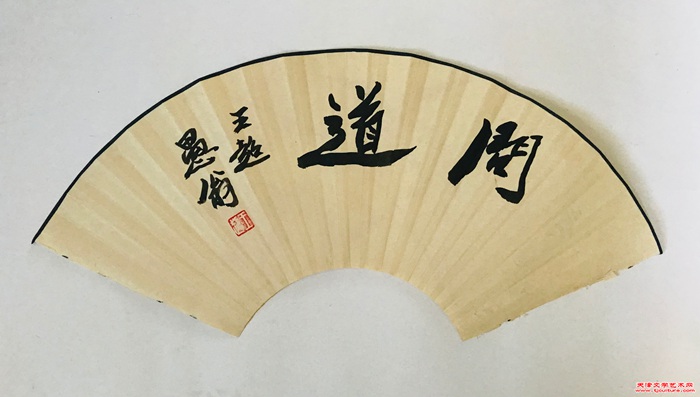 問道
王超
愚翁
天津文学艺术网
www.tjculture.com